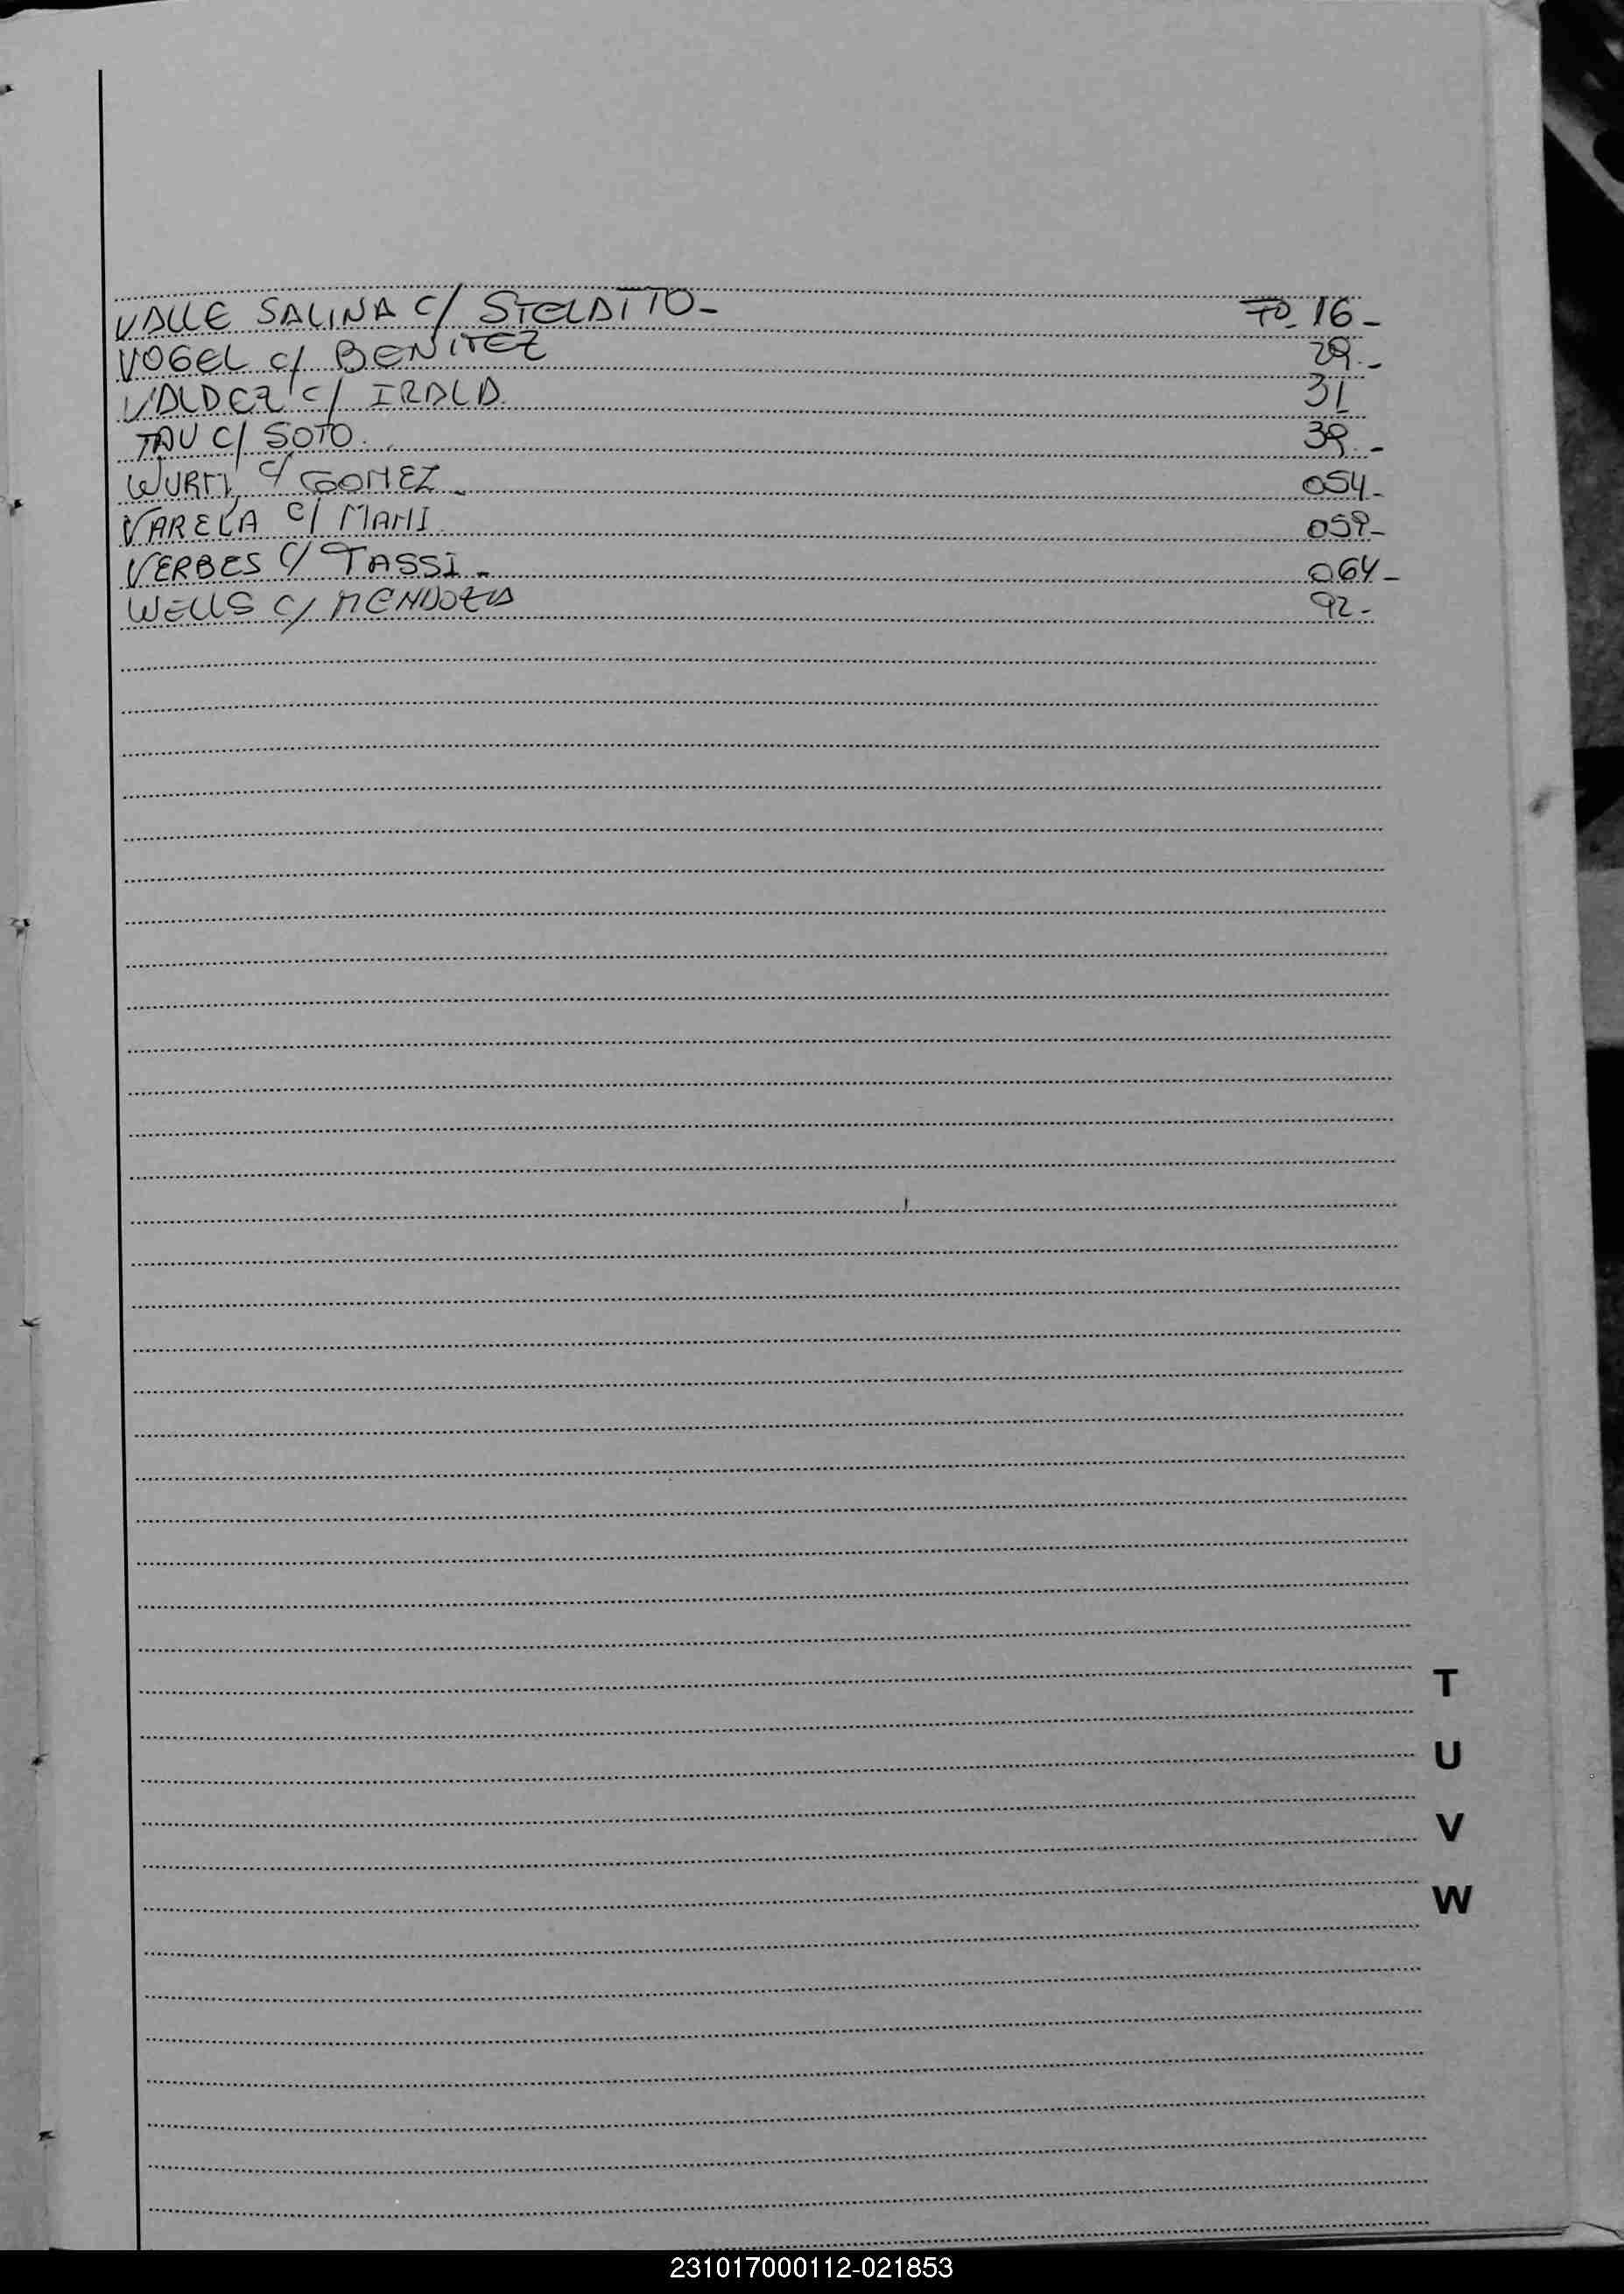 VALLE SALINA C/ STELDITTO- Fo. 16-
VOGEL C/ BENITEZ 29.-
VALDEZ C/ IRALA 31
TAU C/ SOTO. 39.-
WURM C/ GOMEZ- 054-
VARELA C/ MAMI 059-
VERBES C/ TASSI- 064-
WELLS C/ MENDOZA 92-
T
U
V
W
231017000112-021853